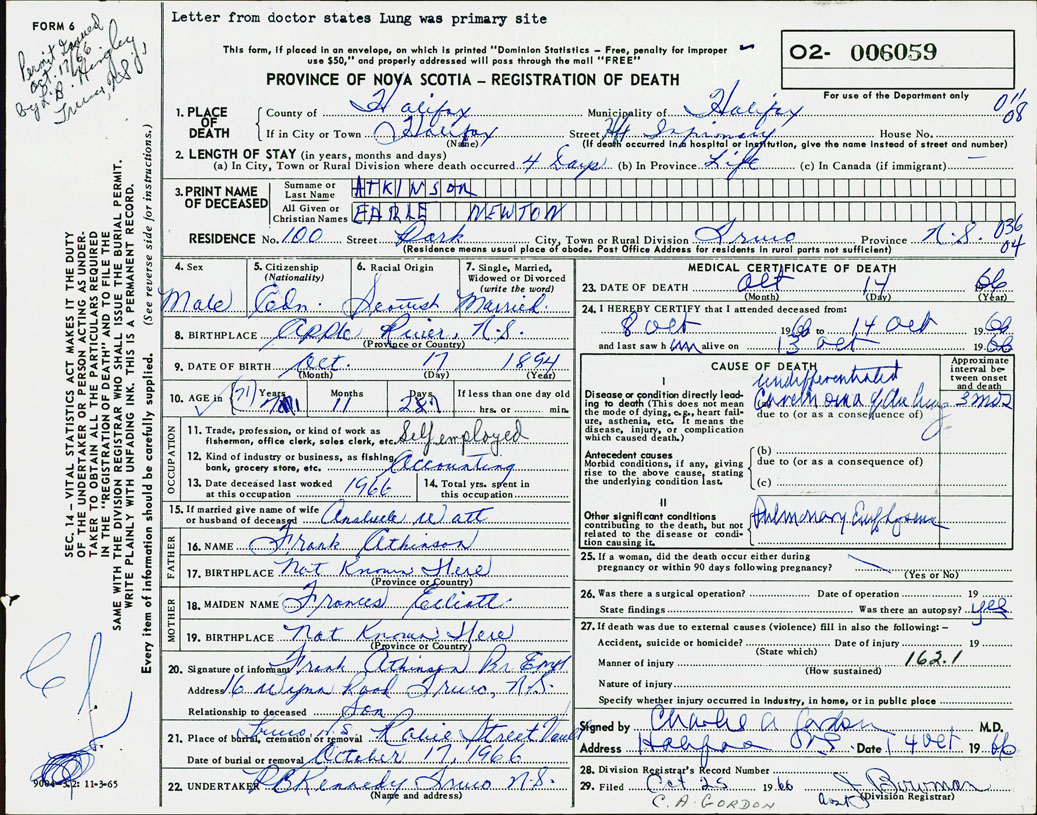 FORM 6
Letter from doctor states Lung was primary site
Permit Issued
Oct. 17/66
by L.B. Hingley
Truro, N.S.
This form, if placed in an envelope, on which is printed "Dominion Statistics – Free, penalty for improper
use $50," and properly addressed will pass through the mail "FREE"
O2- 006059
For use of the Department only
PROVINCE OF NOVA SCOTIA – REGISTRATION OF DEATH
011
08
1. PLACE OF DEATH
County of Halifax Municipality of Halifax
If in City or Town Halifax Street Hfx Infirmary House No.
(Name) (If death occurred in a hospital or institution, give the name instead of street and number)
2. LENGTH OF STAY (in years, months and days)
(a) In City, Town or Rural Division where death occurred 4 Days (b) In Province Life (c) In Canada (if immigrant) —
3. PRINT NAME OF DECEASED
Surname or Last Name ATKINSON
All Given or Christian Names EARLE NEWTON
RESIDENCE No. 100 Street Park City, Town or Rural Division Truro Province N.S.
036
04
(Residence means usual place of abode. Post Office Address for residents in rural parts not sufficient)
4. Sex
Male
5. Citizenship (Nationality)
Cdn.
6. Racial Origin
Scottish
7. Single, Married, Widowed or Divorced (write the word)
Married
8. BIRTHPLACE Apple River, N.S.
(Province or Country)
9. DATE OF BIRTH Oct. 17 1894
(Month) (Day) (Year)
10. AGE in (71) Years Months 11 Days 28 If less than one day old
hrs. or min.
OCCUPATION
11. Trade, profession, or kind of work as
fisherman, office clerk, sales clerk, etc. Self employed
12. Kind of industry or business, as fishing,
bank, grocery store, etc. Accounting
13. Date deceased last worked
at this occupation 1966
14. Total yrs. spent in
this occupation
15. If married give name of wife
or husband of deceased Watt
FATHER
16. NAME Frank Atkinson
17. BIRTHPLACE Not Known Here
(Province or Country)
MOTHER
18. MAIDEN NAME Frances Elliott
19. BIRTHPLACE Not Known Here
(Province or Country)
20. Signature of informant Frank Atkinson
Address 16 Road Truro, N.S.
Relationship to deceased Son
21. Place of burial, cremation or removal Truro, N.S. Street Vault
Date of burial or removal October 17, 1966
22. UNDERTAKER Kennedy Truro N.S.
(Name and address)
MEDICAL CERTIFICATE OF DEATH
23. DATE OF DEATH Oct 14 66
(Month) (Day) (Year)
24. I HEREBY CERTIFY that I attended deceased from:
8 Oct 1966 to 14 Oct 1966
and last saw him alive on 13 Oct 1966
CAUSE OF DEATH
Approximate interval between onset and death
I
Disease or condition directly leading to death (This does not mean the mode of dying, e.g., heart failure, asthenia, etc. It means the disease, injury, or complication which caused death.)
undifferentiated
(a) Carcinoma of the lung 3 mos
due to (or as a consequence of)
Antecedent causes
Morbid conditions, if any, giving rise to the above cause, stating the underlying condition last.
(b)
due to (or as a consequence of)
(c)
II
Other significant conditions
contributing to the death, but not related to the disease or condition causing it.
Pulmonary Emphysema
25. If a woman, did the death occur either during
pregnancy or within 90 days following pregnancy?
(Yes or No)
26. Was there a surgical operation? Date of operation 19
State findings Was there an autopsy? yes
27. If death was due to external causes (violence) fill in also the following: –
Accident, suicide or homicide? Date of injury 19
(State which)
Manner of injury 162.1
(How sustained)
Nature of injury
Specify whether injury occurred in industry, in home, or in public place
Signed by Charlie A Gordon M.D.
Address Halifax NS. Date 14 Oct 1966
28. Division Registrar's Record Number
29. Filed Oct 25 1966 J. Bowman
Asst (Division Registrar)
C.A. GORDON
SEC. 14 – VITAL STATISTICS ACT MAKES IT THE DUTY
OF THE UNDERTAKER OR PERSON ACTING AS UNDER-
TAKER TO OBTAIN ALL THE PARTICULARS REQUIRED
IN THE "REGISTRATION OF DEATH" AND TO FILE THE
SAME WITH THE DIVISION REGISTRAR WHO SHALL ISSUE THE BURIAL PERMIT.
WRITE PLAINLY WITH UNFADING INK. THIS IS A PERMANENT RECORD.
Every item of information should be carefully supplied. (See reverse side for instructions.)
11-3-65